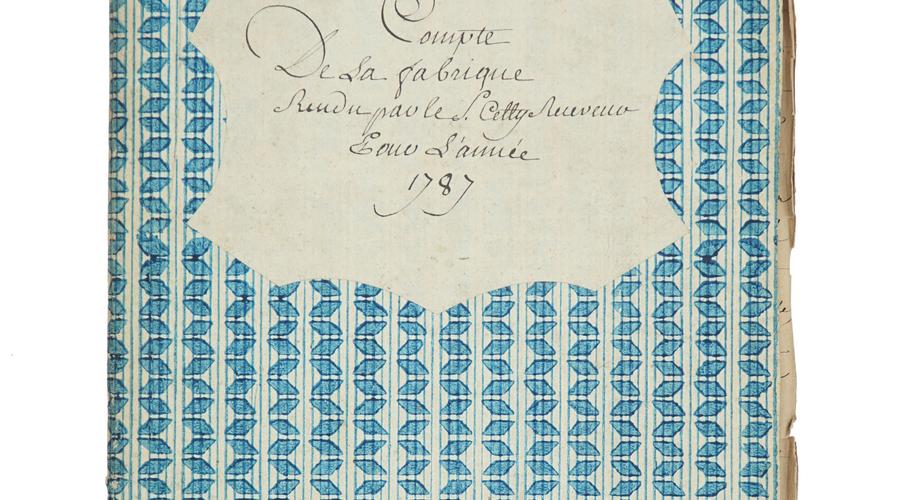 Compte
De La fabrique
Rendu par le S. Cetty Receveur
Pour L'année
1787